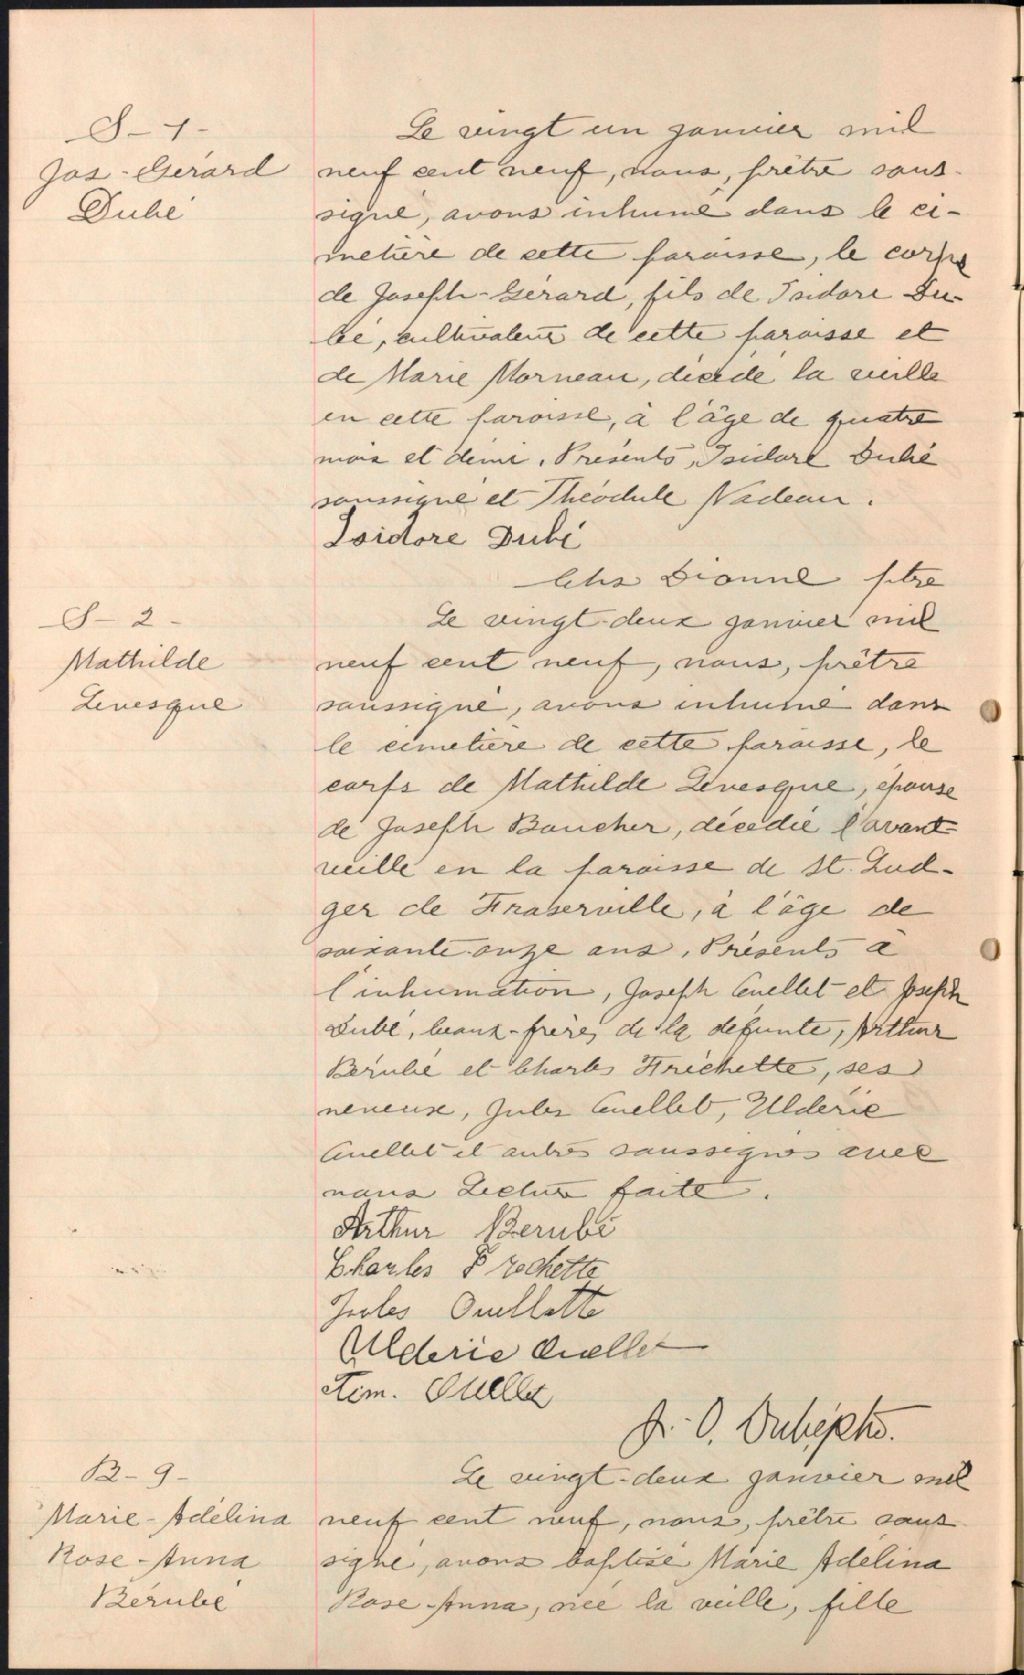 S-1-
Jos-Gérard
Dubé
Le vingt un janvier mil
neuf cent neuf, nous, prêtre sous-
signé, avons inhumé dans le ci-
metière de cette paroisse, le corps
de Joseph-Gérard, fils de Isidore Du-
bé, cultivateur de cette paroisse et
de Marie Morneau, décédé la veille
en cette paroisse, à l'âge de quatre
mois et demi. Présents, Isidore Dubé
soussigné et Théodule Nadeau.
Isidore Dubé
Chs Dionne ptre
S-2-
Mathilde
Levesque
Le vingt-deux janvier mil
neuf cent neuf, nous, prêtre
soussigné, avons inhumé dans
le cimetière de cette paroisse, le
corps de Mathilde Levesque, épouse
de Joseph Boucher, décédée l'avant-
veille en la paroisse de St. Lud-
ger de Fraserville, à l'âge de
soixante-onze ans. Présents à
l'inhumation, Joseph Ouellet et Joseph
Dubé, beaux-frères de la défunte, Arthur
Bérubé et Charles Fréchette, ses
neveux, Jules Ouellet, Ulderic
Ouellet et autres soussignés avec
nous Lecture faite.
Arthur Berubé
Charles Frechette
Jules Ouellette
Ulderic Ouellet
Tim. Ouellet
J.-O. Dubé, ptre.
B-9-
Marie-Adélina
Rose-Anna
Bérubé
Le vingt-deux janvier mil
neuf cent neuf, nous, prêtre sous-
signé, avons baptisé Marie Adélina
Rose-Anna, née la veille, fille